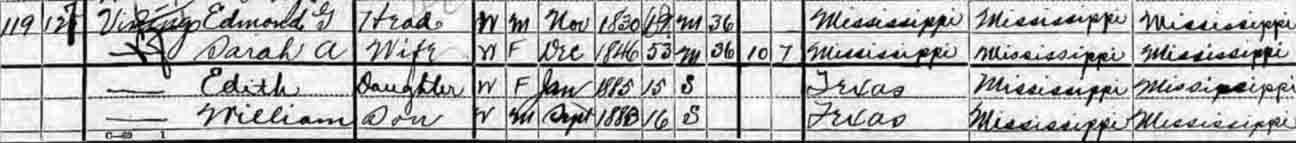 119 Edmond G Head W M Nov 1830 M 36 Mississippi Mississippi Mississippi
Sarah A Wife W F Dec 1846 53 M 36 10 7 Mississippi Mississippi Mississippi
— Edith Daughter W F Jan 1885 15 S Texas Mississippi Mississippi
— William Son W M Sept 16 S Texas Mississippi Mississippi